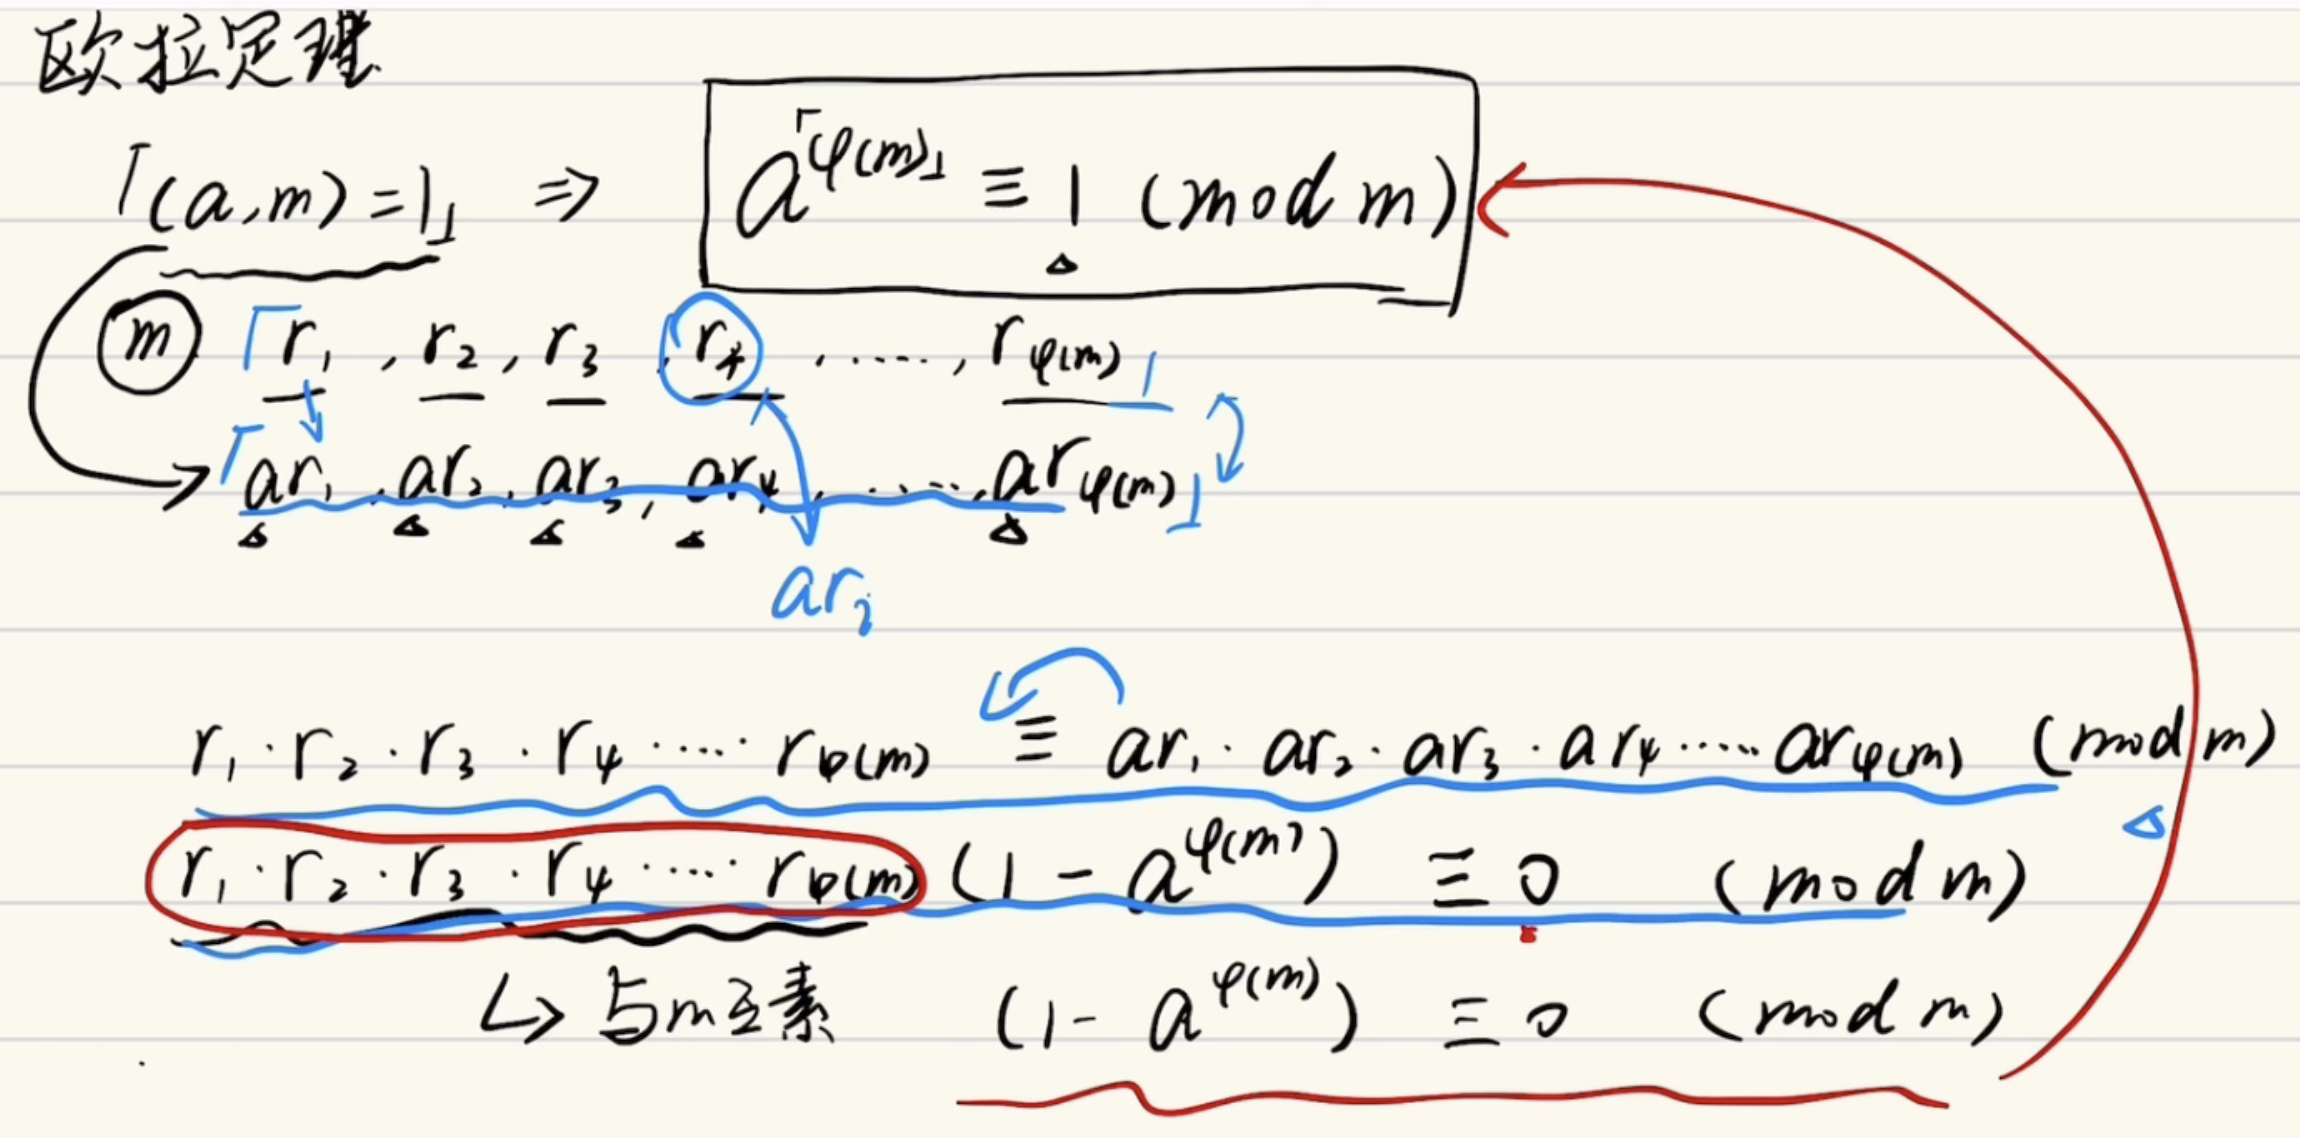 欧拉定理
「(a,m)=1」 ⇒ a^「φ(m)」 ≡ 1 (mod m)
m 「r₁, r₂, r₃, r₄, ……, r_φ(m)」
「ar₁, ar₂, ar₃, ar₄, ……, ar_φ(m)」
arᵢ
r₁·r₂·r₃·r₄·……·r_φ(m) ≡ ar₁·ar₂·ar₃·ar₄·……ar_φ(m) (mod m)
r₁·r₂·r₃·r₄·……·r_φ(m) (1-a^φ(m)) ≡ 0 (mod m)
↳ 与m互素 (1-a^φ(m)) ≡ 0 (mod m)